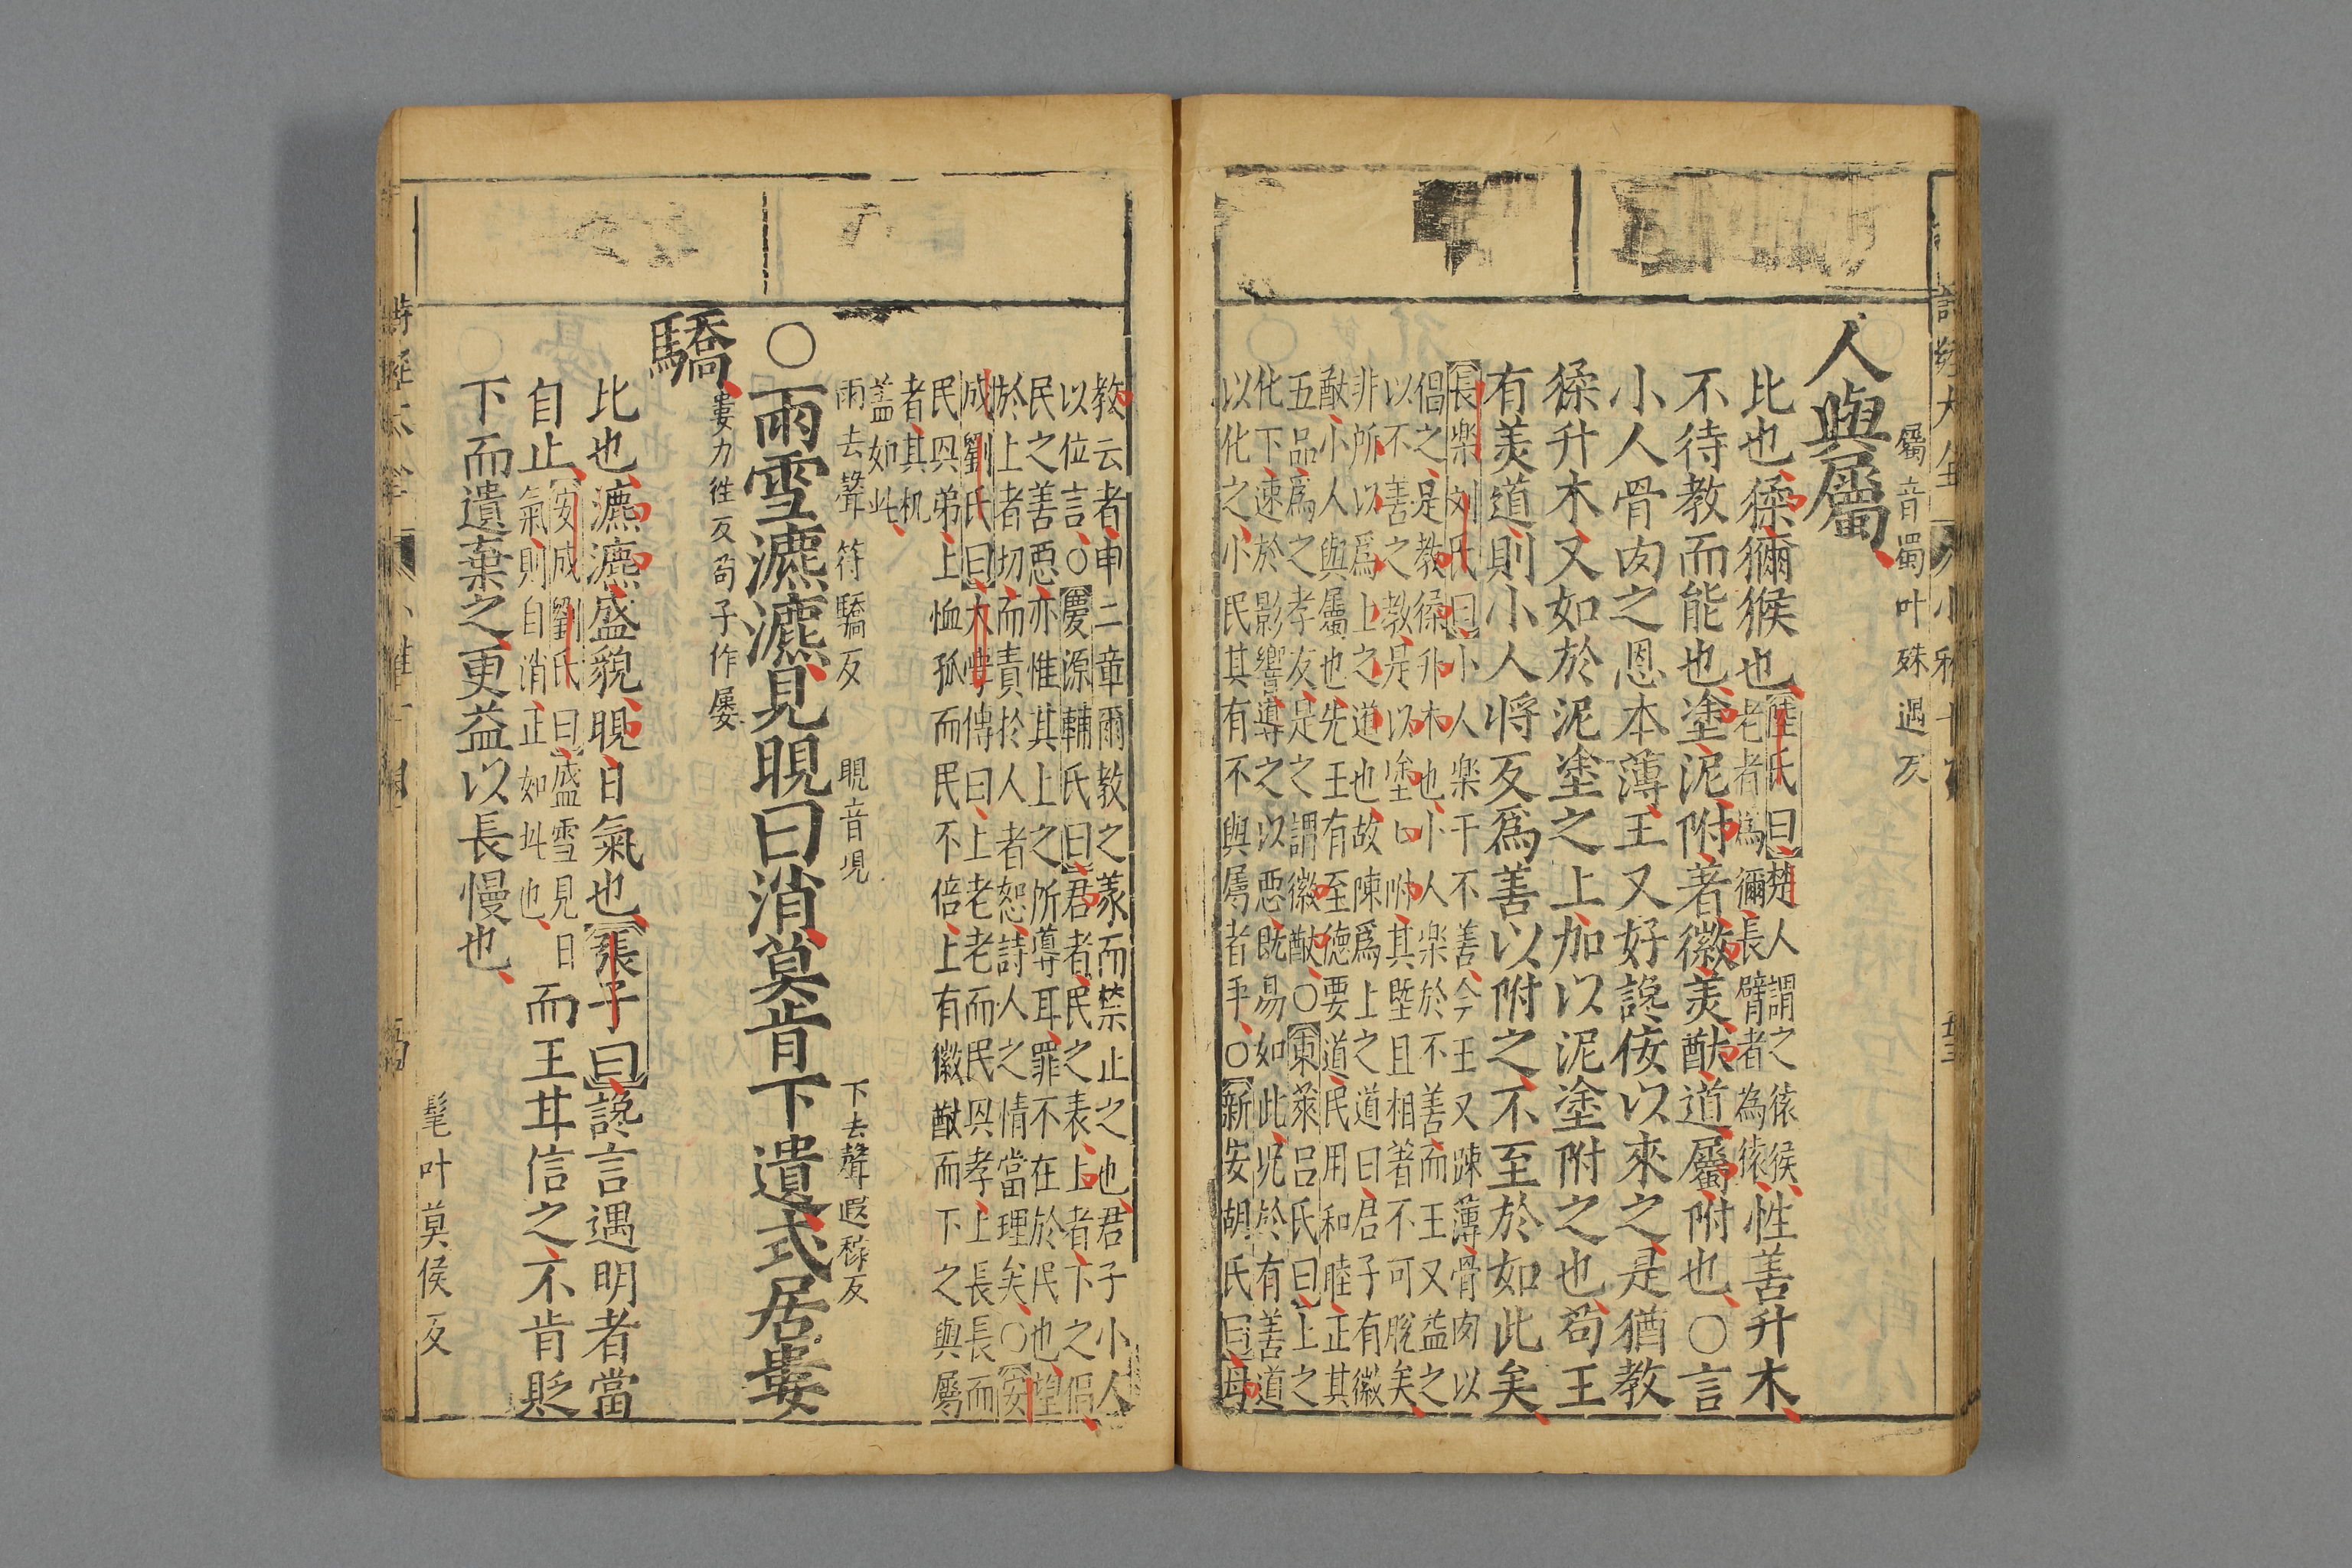 屬音蜀叶殊遇反
人與屬
比也猱獼猴也陸氏曰楚人謂之猿猴
老者為獼長臂者為猿性善升木
不待教而能也塗泥附著徽美猷道屬附也○言
小人骨肉之恩本薄王又好讒佞以來之是猶教
猱升木又如於泥塗之上加以泥塗附之也苟王
有美道則小人将反爲善以附之不至於如此矣
長楽刘氏曰小人楽干不善今王又踈薄骨肉以
倡之是教猱升木也小人楽於不善而王又益之
以不善之教是以塗附其堅且相著不可脫矣
非所以爲上之道也故陳爲上之道曰君子有徽
猷小人與屬也先王有至德要道民用和睦正其
五品爲之孝友是之謂徽猷○東萊呂氏曰上之
化下速於影響導之以惡既易如此况於有善道
以化之小民其有不與屬者乎○新安胡氏曰毋
教云者申二章爾教之義而禁止之也君子小人
以位言○慶源輔氏曰君者民之表上者下之倡
民之善惡亦惟其上之所導耳罪不在於民也望
於上者切而責於人者恕詩人之情當理矣○安
成劉氏曰大學傳曰上老老而民興孝上長長而
民興弟上恤孤而民不倍上有徽猷而下之與屬
者其机
蓋如此
雨去聲 符驕反 晛音現 下去聲 遐稼反
○雨雪瀌瀌見晛曰消莫肯下遺式居婁
驕婁力住反荀子作屢
比也瀌瀌盛貌晛日氣也張子曰讒言遇明者當
自止安成劉氏曰盛雪見日
氣則自消正如此也而王甘信之不肯貶
下而遺棄之更益以長慢也
髦叶莫侯反